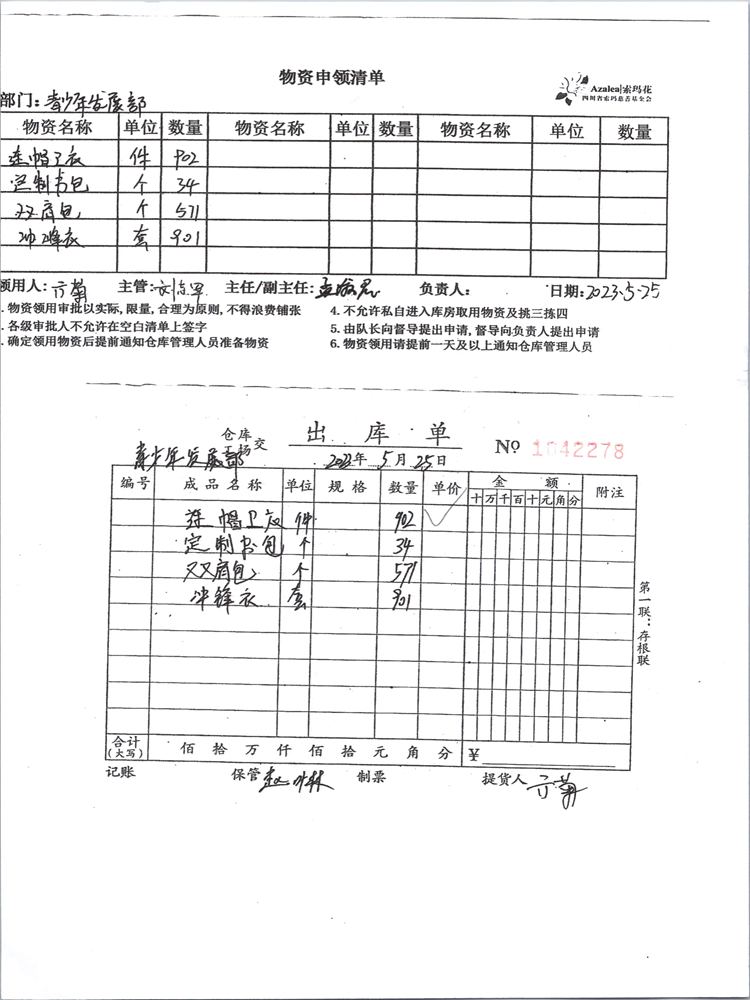 物资申领清单
Azalea|索玛花
四川省索玛慈善基金会
部门：青少年发展部
物资名称 单位 数量 物资名称 单位 数量 物资名称 单位 数量
连帽卫衣 件 902
定制书包 个 34
双肩包 个 571
冲峰衣 套 901
领用人： 主管： 主任/副主任： 负责人： 日期：2023-5-25
.物资领用审批以实际，限量，合理为原则，不得浪费铺张 4.不允许私自进入库房取用物资及挑三拣四
.各级审批人不允许在空白清单上签字 5.由队长向督导提出申请，督导向负责人提出申请
.确定领用物资后提前通知仓库管理人员准备物资 6.物资领用请提前一天及以上通知仓库管理人员
出库单
仓库
交
青少年发展部 2023年5月25日 № 1042278
编号 成品名称 单位 规格 数量 单价 金额 附注
十万千百十元角分
连帽卫衣 件 902
定制书包 个 34
双肩包 个 571
冲锋衣 套 901
第一联：存根联
合计（大写） 佰 拾 万 仟 佰 拾 元 角 分 ¥
记账 保管 制票 提货人